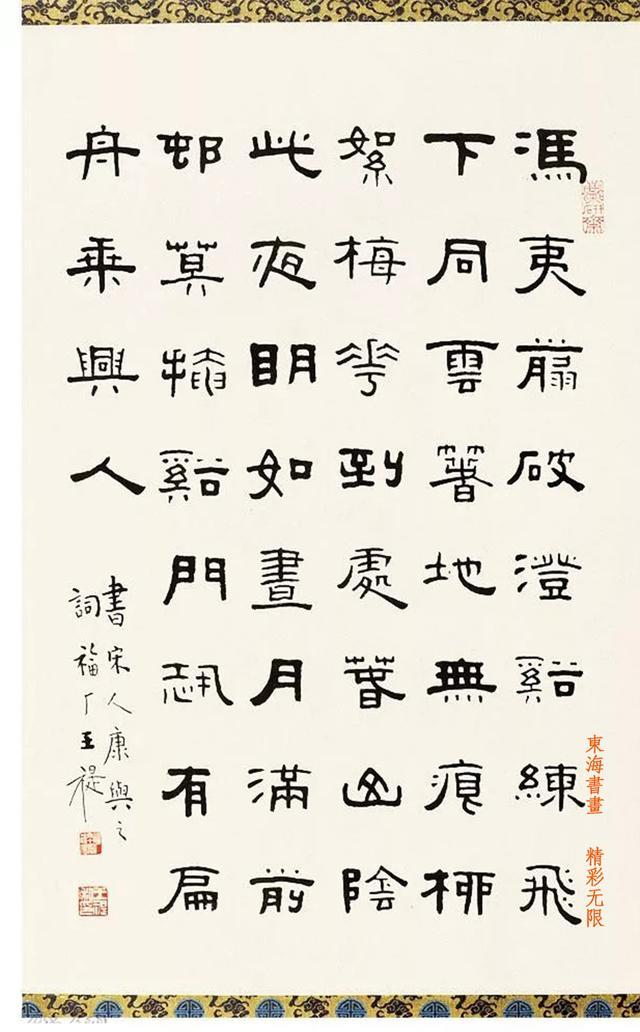 馮夷翦破澄谿練飛
下同雲箸地無痕柳
絮梅花到處春山陰
此夜眀如晝月滿前
邨莫掩谿門恐有扁
舟乘興人
書宋人康與之
詞福厂王禔
東海書畫 精彩无限